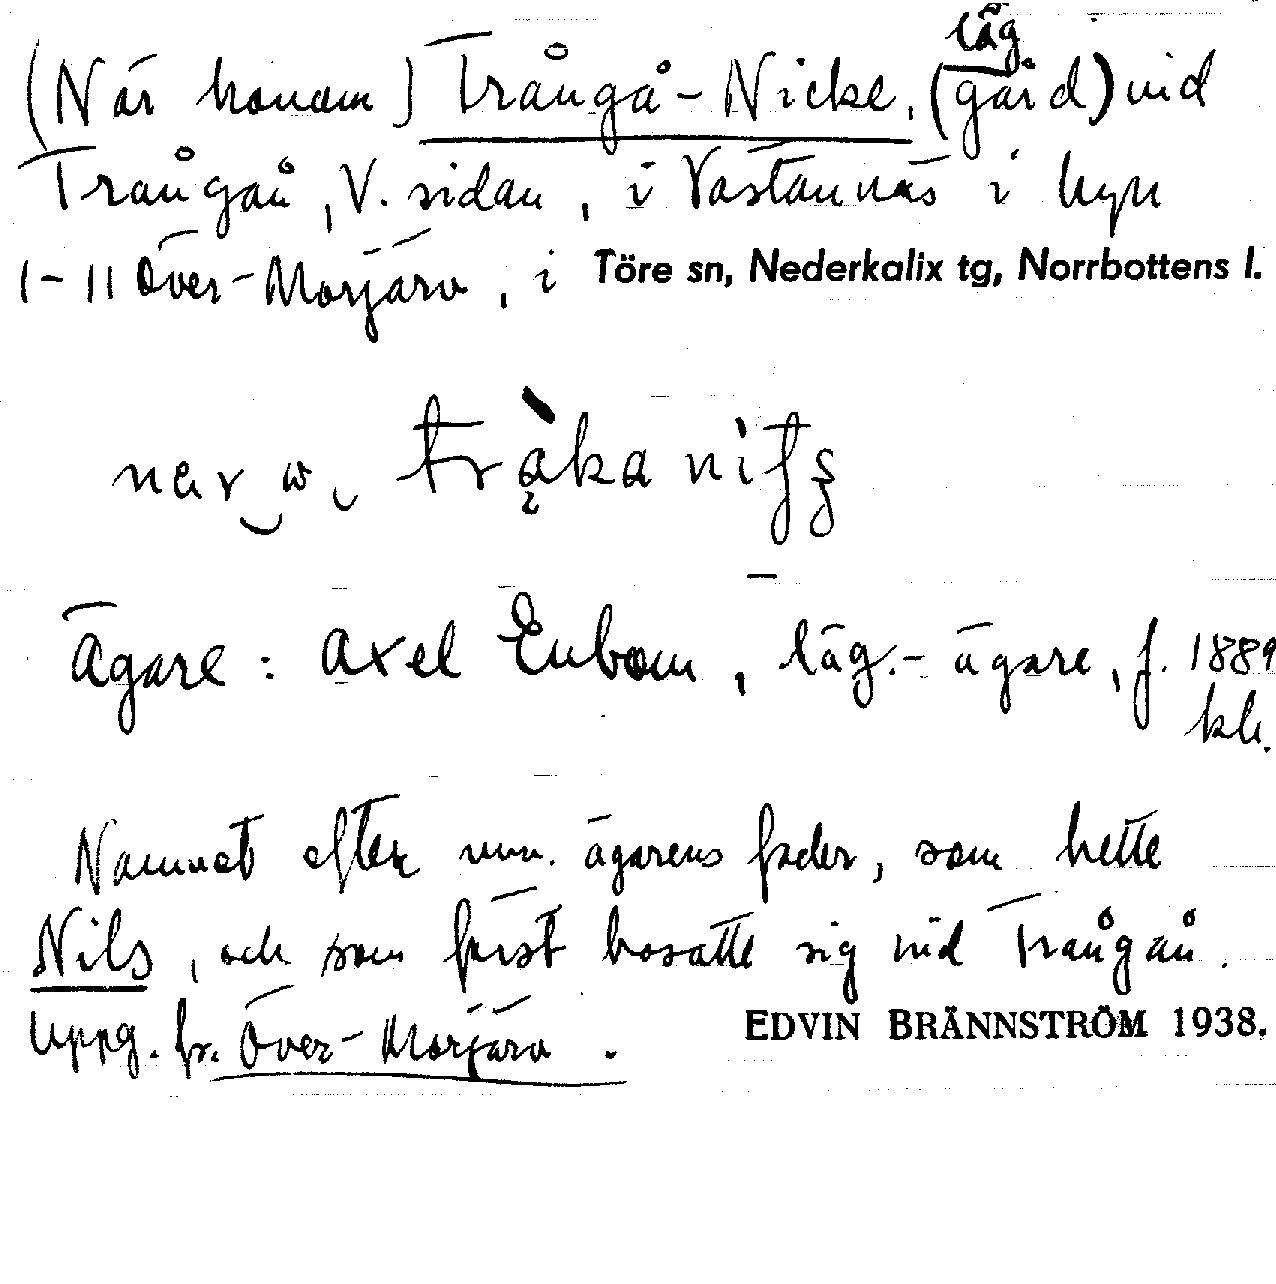 läg
(När honom) Trångå-Nicke, (gård) vid
Trångån, V. sidan, i Västannäs i byn
1-11 Över-Morjärv, i Töre sn, Nederkalix tg, Norrbottens l.
Ägare: Axel Enbom, läg.-ägare, f. 1889
Namnet efter nuv. ägarens fader, som hette
Nils, och som först bosatte sig vid Trångån.
Uppg. fr. Över-Morjärv. EDVIN BRÄNNSTRÖM 1938.